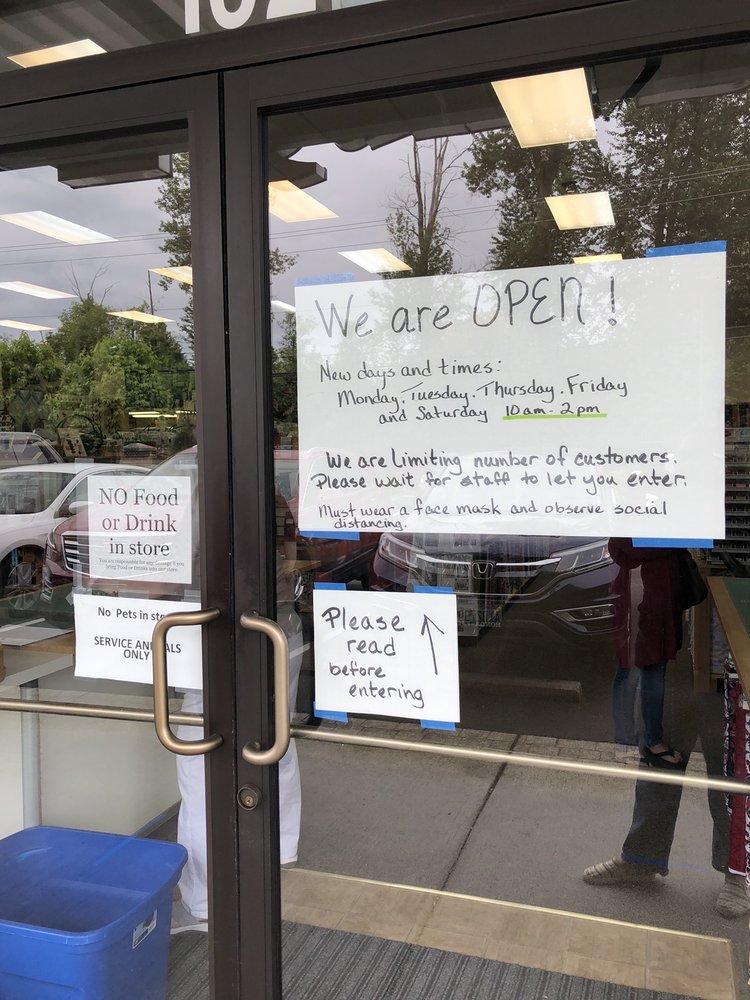 We are OPEN!
New days and times:
Monday, Tuesday, Thursday, Friday
and Saturday 10am-2pm
We are Limiting number of customers.
Please wait for staff to let you enter.
Must wear a face mask and observe social
distancing.
NO Food
or Drink
in store
You are responsible for any damage if you
bring Food or Drinks into our store.
No Pets in
SERVICE
ONLY
Please
read
before
entering